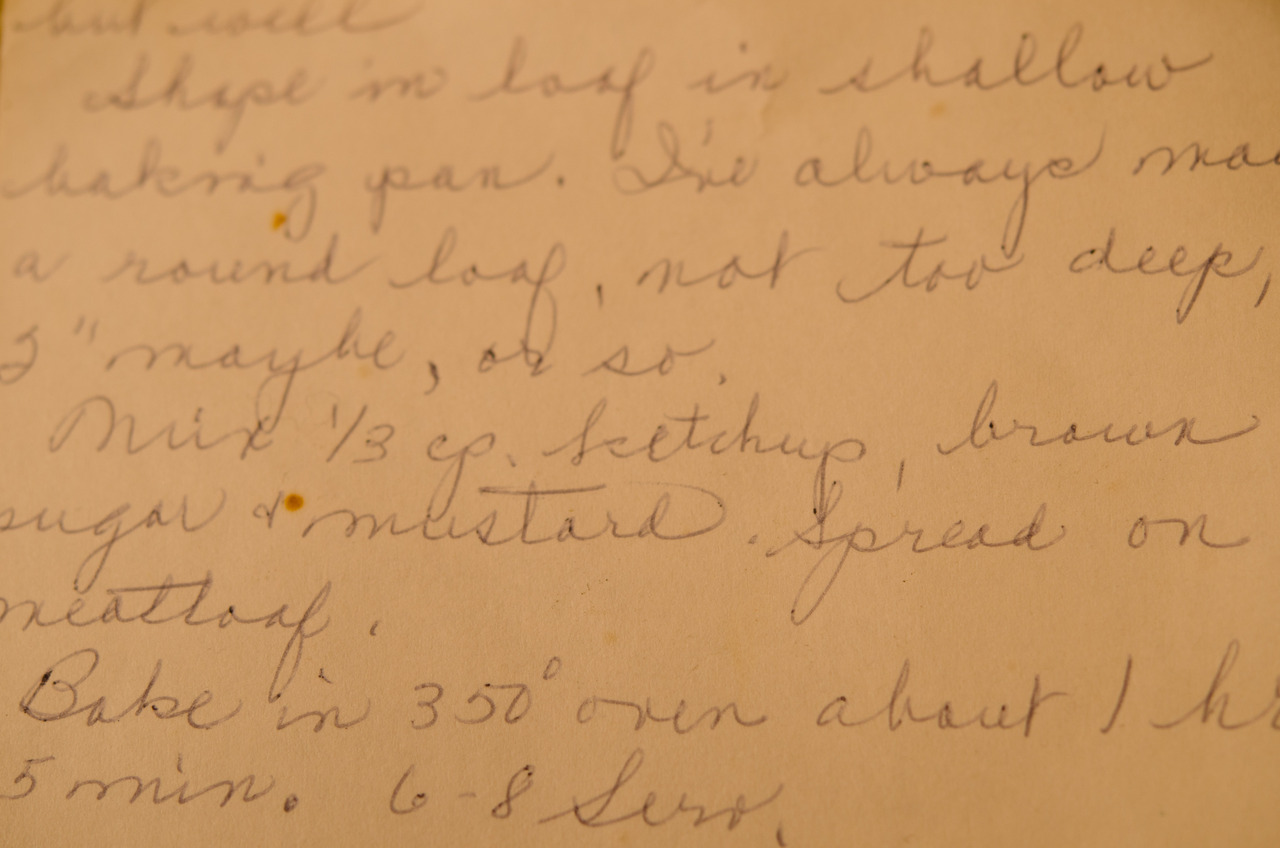 but well
Shape in loaf in shallow
baking pan. I've always
a round loaf, not too deep,
3" maybe, or so.
Mix 1/3 cp. ketchup, brown
sugar & mustard. Spread on
meatloaf.
Bake in 350° oven about 1
5 min. 6-8 Serv.